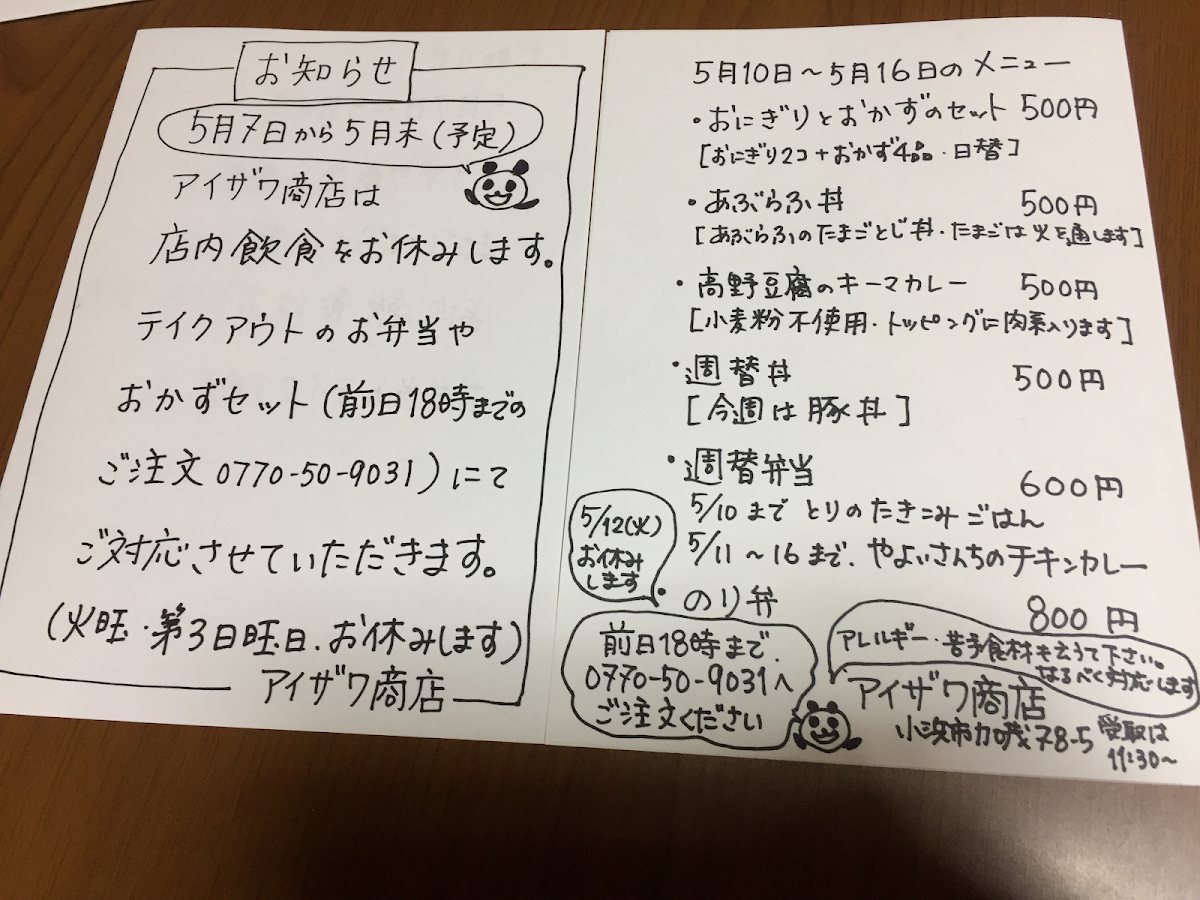 お知らせ
5月7日から5月末(予定)
アイザワ商店は
店内飲食をお休みします。
テイクアウトのお弁当や
おかずセット(前日18時までの
ご注文 0770-50-9031)にて
ご対応させていただきます。
(火旺・第3日旺日、お休みします)
アイザワ商店
5月10日～5月16日のメニュー
・おにぎりとおかずのセット 500円
[おにぎり2コ+おかず4品・日替]
・あぶらふ丼 500円
[あぶらふのたまごとじ丼・たまごは火を通します]
・高野豆腐のキーマカレー 500円
[小麦粉不使用・トッピングに肉系入ります]
・週替丼 500円
[今週は豚丼]
・週替弁当 600円
5/10まで とりのたきこみごはん
5/11～16まで、やよいさんちのチキンカレー
・のり弁 800円
5/12(火)
お休み
します
前日18時まで、
0770-50-9031へ
ご注文ください
アレルギー・苦手食材も云うて下さい。
なるべく対応します
アイザワ商店
小浜市加茂78-5
受取は
11:30～